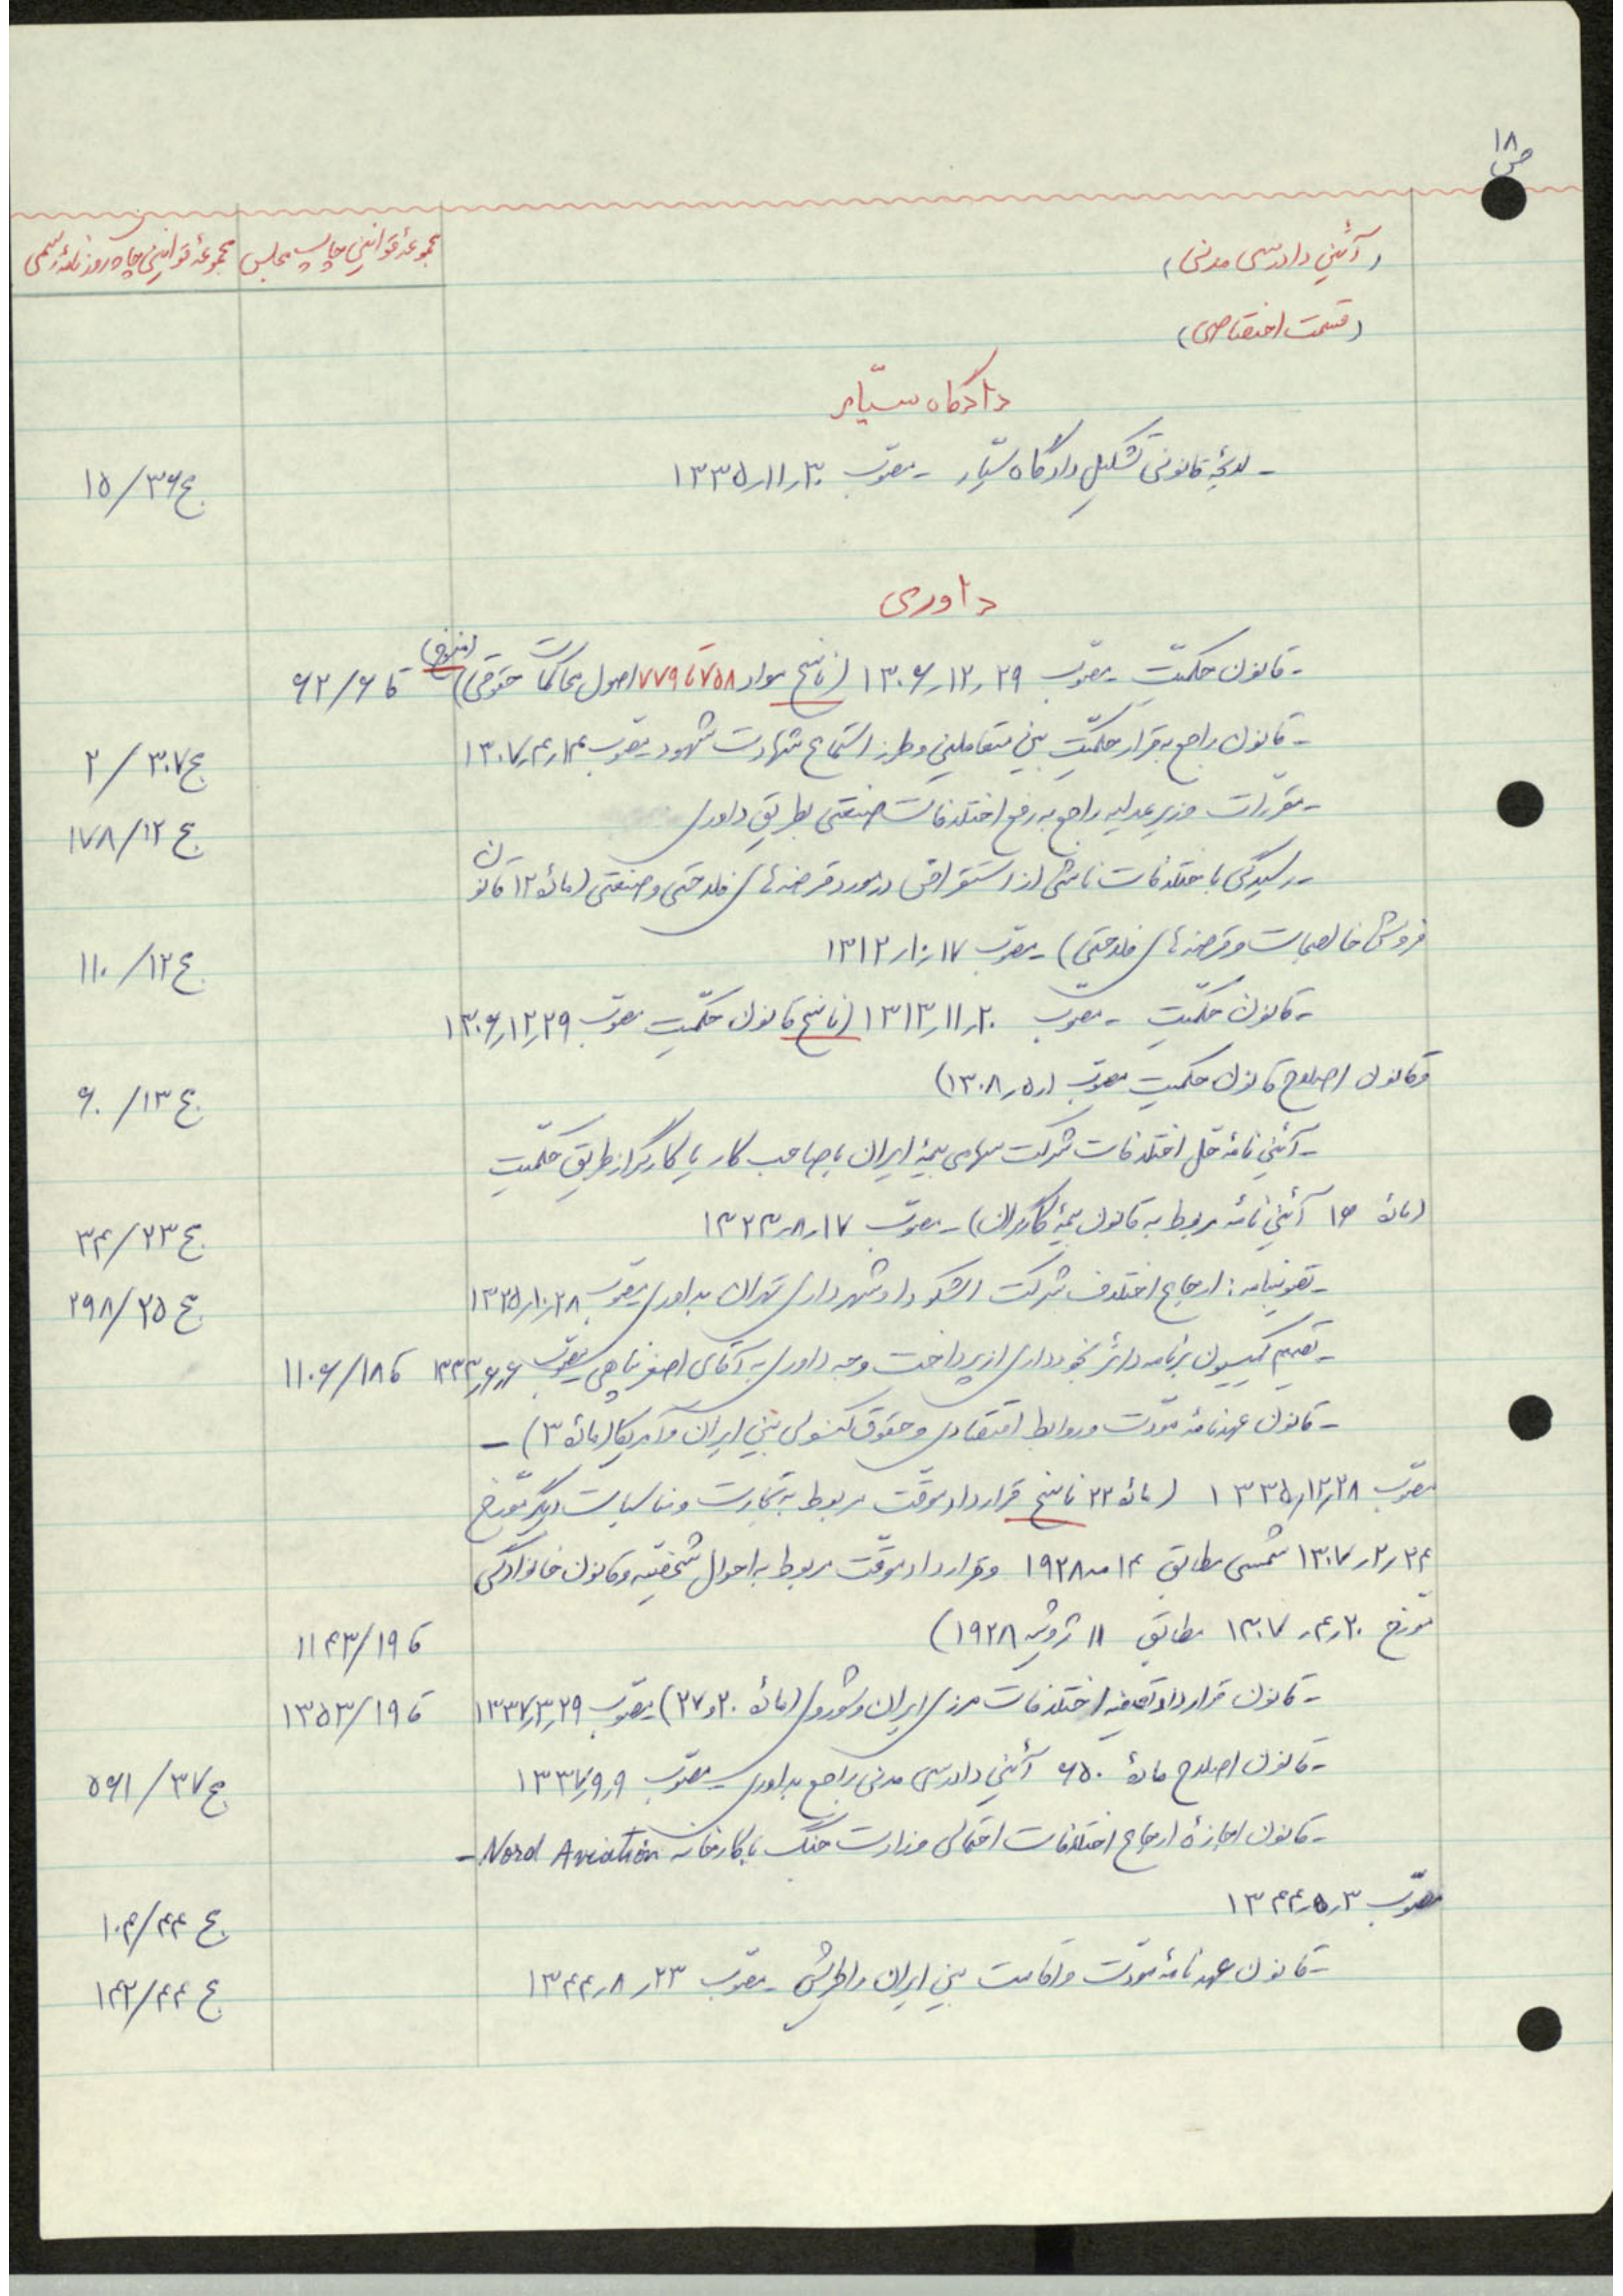 ص ۱۸
(آئین دادرسی مدنی) مجموعهٔ قوانین چاپ مجلس مجموعهٔ قوانین چاپ روزنامهٔ رسمی
(قسمت اختصاصی)
دادگاه سیّار
- لایحهٔ قانونی تشکیل دادگاه سیّار - مصوّب ۱۳۳۵٫۱۱٫۳۰ ج ۳۶/۱۵
داوری
- قانون حکمیّت - مصوّب ۱۳۰۶٫۱۲٫۲۹ (ناسخ مواد ۷۵۸ تا ۷۷۹ اصول محاکمات حقوقی) (منسوخ) قا ۶/۶۲
- قانون راجع به قرار حکمیّت بین متعاملین و طرز استماع شهادت شهود - مصوب ۱۳۰۷٫۴٫۱۴ ج ۳۰۷/۲
- مقررات وزیر عدلیه راجع به رفع اختلافات صنعتی بطریق داوری ج ۱۲/۱۷۸
- رسیدگی باختلافات ناشی از استقراض در مورد قرضه‌های فلاحتی و صنعتی (مادهٔ ۱۲ قانون
فروش خالصجات و قرضه‌های فلاحتی) - مصوب ۱۳۱۲٫۱۰٫۱۷ ج ۱۲/۱۱۰
- قانون حکمیّت - مصوّب ۱۳۱۳٫۱۱٫۲۰ (ناسخ قانون حکمیّت مصوب ۱۳۰۶٫۱۲٫۲۹
و قانون اصلاح قانون حکمیت مصوب ۱۳۰۸٫۵٫۱) ج ۱۳/۶۰
- آئین نامهٔ حل اختلافات شرکت سهامی بیمهٔ ایران با صاحب کار یا کارگر از طریق حکمیّت
(مادهٔ ۱۶ آئین نامه مربوط به قانون بیمهٔ کارگران) - مصوب ۱۳۲۳٫۸٫۱۷ ج ۲۳/۳۴
- تصویبنامه: ارجاع اختلاف شرکت اشکودا و شهرداری تهران بداوری - مصوب ۱۳۲۵٫۱۰٫۲۸ ج ۲۵/۲۹۸
- تصمیم کمیسیون برنامه دائر بخودداری از پرداخت وجه داوری به آقای اصغر پناهی - مصوب ۱۳۳۳٫۶٫۶ قا ۱۸/۱۱۰۶
- قانون عهدنامهٔ مودّت و روابط اقتصادی و حقوق کنسولی بین ایران و آمریکا (مادهٔ ۳) -
مصوّب ۱۳۳۵٫۱۲٫۲۸ (مادهٔ ۲۲ ناسخ قرارداد موقّت مربوط به تجارت و مناسبات دیگر مورّخ
۱۳۰۷٫۲٫۲۴ شمسی مطابق ۱۴ مه ۱۹۲۸ و قرارداد موقّت مربوط به احوال شخصیّه و قانون خانوادگی
مورّخ ۱۳۰۷٫۴٫۲۰ مطابق ۱۱ ژوئیه ۱۹۲۸) قا ۱۹/۱۱۴۳
- قانون قرارداد تصفیه اختلافات مرزی ایران و شوروی (مادهٔ ۲۰ و ۲۷) - مصوّب ۱۳۳۷٫۳٫۲۹ قا ۱۹/۱۳۵۳
- قانون اصلاح مادهٔ ۶۵۰ آئین دادرسی مدنی راجع بداوری - مصوّب ۱۳۳۷٫۹٫۹ ج ۳۷/۵۶۱
- قانون اجازهٔ ارجاع اختلافات احتمالی وزارت جنگ با کارخانه Nord Aviation -
مصوّب ۱۳۴۴٫۵٫۳ ج ۴۴/۱۰۴
- قانون عهدنامهٔ مودّت و اقامت بین ایران و اطریش - مصوّب ۱۳۴۴٫۸٫۲۳ ج ۴۴/۱۴۲